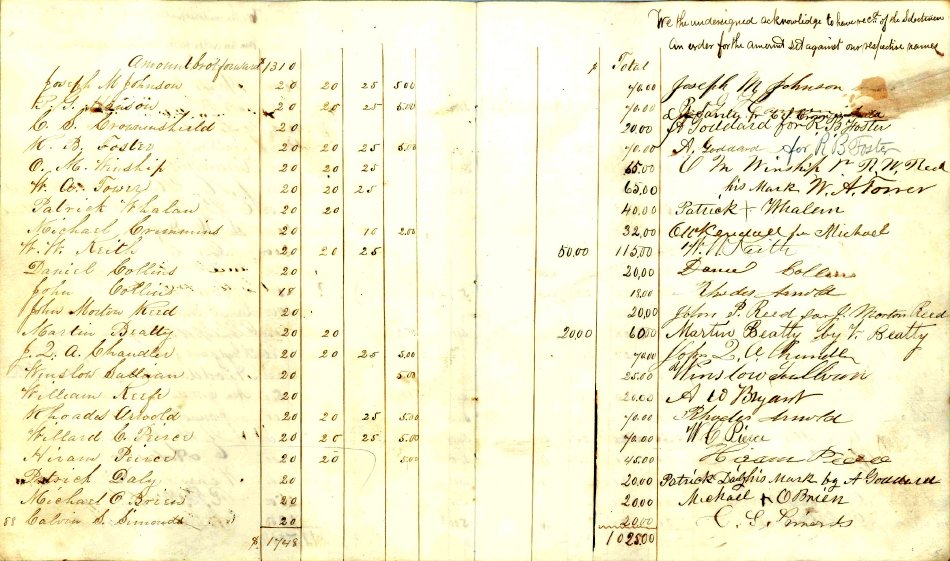 We the undersigned acknowledge to have rect. of the Selectmen
an order for the amount set against our respective names
Amount brot forward $1310 $ Total
Joseph M Johnson 20 20 25 5.00 70.00 Joseph M Johnson
R. G. 20 20 25 5.00 70.00
C. S. Crowninshield 20 20.00 A Goddard for R B Foster
R. B. Foster 20 20 25 5.00 70.00 A. Goddard for R B Foster
O. M. Winship 20 20 25 65.00 O M Winship
W. A. Tower 20 20 25 65.00 his Mark W. A.
Patrick Whalan 20 20 40.00 Patrick + Whalen
Michael Crimmins 20 10 2.00 32.00 for Michael
W. W. Keith 20 20 25 50.00 115.00 W. W. Keith
Daniel Collins 20 20.00 Daniel Collins
John Collins 18 18.00 Rhodes Arnold
John Morton Reed 20 20.00 John P. Reed for J. Morton Reed
Martin Beatty 20 20 20.00 60.00 Martin Beatty by F. Beatty
J. Q. A. Chandler 20 20 25 5.00 70.00 John Q. A. Chandler
Winslow Sullivan 20 5.00 25.00 Winslow Sullivan
William Keefe 20 20.00 A W Bryant
Rhoades Arnold 20 20 25 5.00 70.00 Rhodes Arnold
Willard C. Peirce 20 20 25 5.00 70.00 W. C. Pierce
Hiram Peirce 20 20 5.00 45.00 Hiram Pierce
Patrick Daly 20 20.00 Patrick Daly his Mark by A Goddard
Michael O Brien 20 20.00 Michael + OBrien
58 Calvin S. Simonds 20 20.00 C. S. Simonds
$ 1748 1025.00